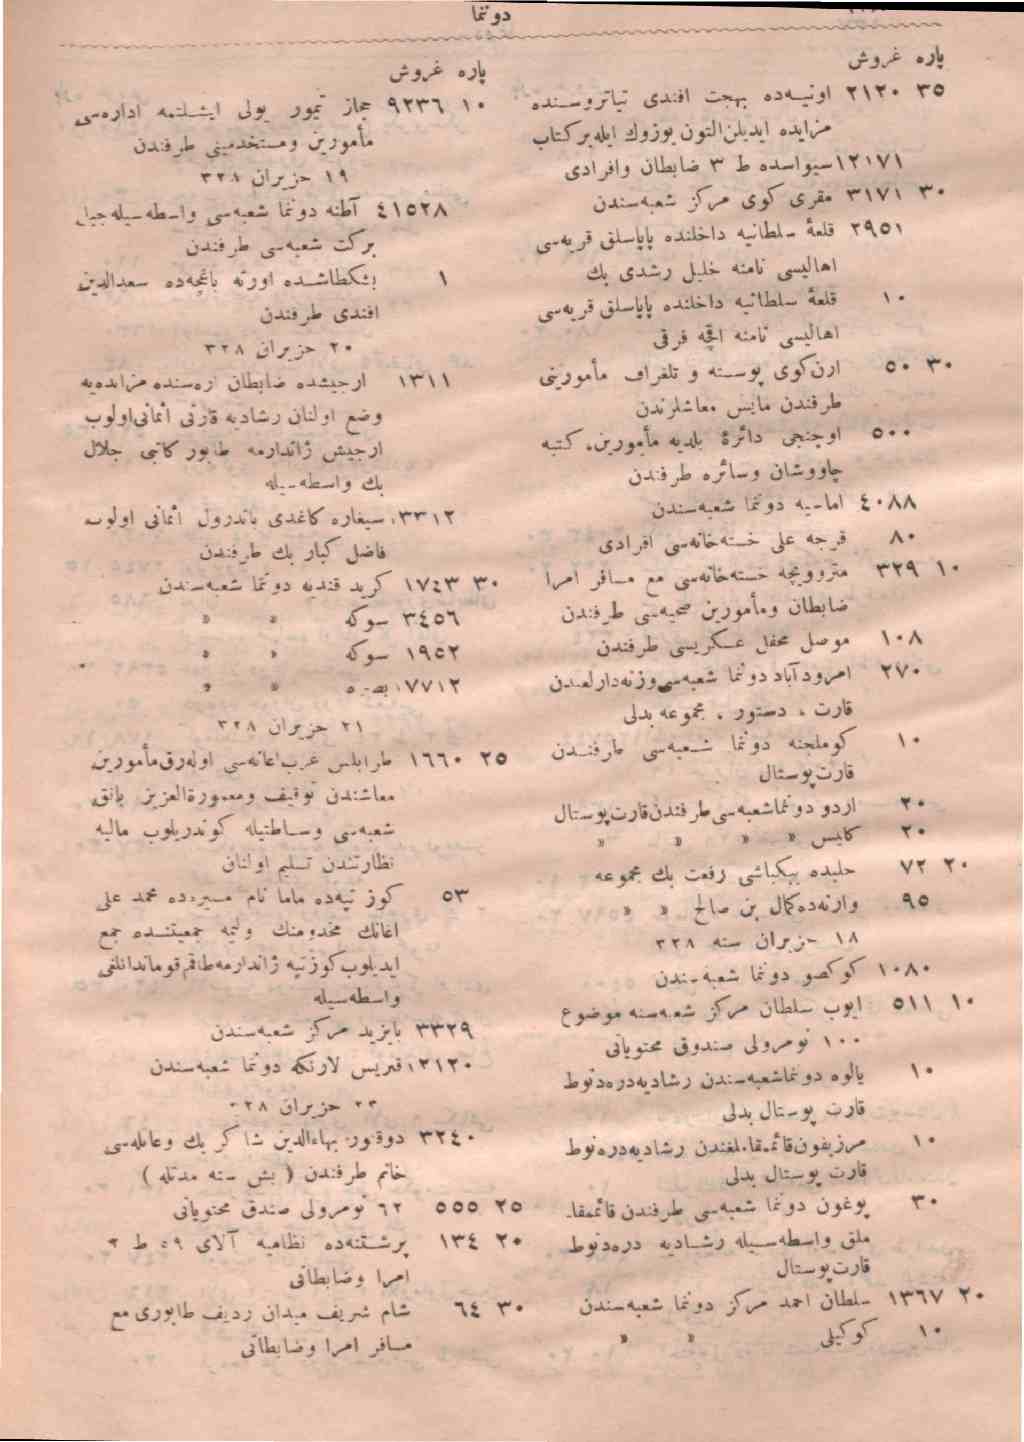 دوننما
پاره غروش
٣٥ ٢١٢٠ اونیه‌ده بهجت افندی تیاتروسنده
مزایده ایدیلن التون یوزوك ایله برکتاب
١٢١٧١ سیواسده ط ٣ ضابطان وافرادی
٣٠ ٣١٧١ مقری کوی مرکز شعبه‌سندن
٢٩٥١ قلعهٔ سلطانیه داخلنده پاپاسلق قریه‌سی
اهالیسی نامنه خلیل رشدی بك
١٠ قلعهٔ سلطانیه داخلنده پاپاسلق قریه‌سی
اهالیسی نامنه اقچه فرقی
٣٠ ٥٠ ارن‌کوی پوسته و تلغراف مأمورینی
طرفندن مایس معاشلرندن
٥٠٠ اوچنجی دائرهٔ بلدیه مأمورین، کتبه
چاووشان وسائره طرفندن
٤٠٨٨ اماسیه دوننما شعبه‌سندن
٨٠ قرجه علی خسته‌خانه‌سی افرادی
١٠ ٣٢٩ متروویچه خسته‌خانه‌سی مع مسافر امرا
ضابطان ومأمورین صحیه‌سی طرفندن
١٠٨ موصل محفل عسکریسی طرفندن
٢٧٠ امرودآباد دوننما شعبه‌سی وزنه‌دارلغندن
قارت ، دستور ، مجموعه بدلی
١٠ کوملجنه دوننما شعبه‌سی طرفندن
قارت پوستال
٢٠ اردو دوننما شعبه‌سی طرفندن قارت پوستال
٢٠ کلیس » » » »
٢٠ ٧٢ حلبده بیکباشی رفعت بك مجموعه
٩٥ وارنه‌ده کمال بن صالح » »
١٨ حزیران سنه ٣٢٨
١٠٨٠ کوکصو دوننما شعبه‌سندن
١٠ ٥١١ ایوب سلطان مرکز شعبه‌سنه موضوع
١٠٠ نومرولی صندوق محتویاتی
١٠ یالوه دوننما شعبه‌سندن رشادیه دره‌دنوط
قارت پوستال بدلی
١٠ مرزیفون قائمقاملغندن رشادیه دره‌نوط
قارت پوستال بدلی
٣٠ پوغون دوننما شعبه‌سی طرفندن قائمقا-
ملق واسطه‌سیله رشادیه دره‌دنوط
قارت پوستال
٢٠ ١٣٦٧ سلطان احمد مرکز دوننما شعبه‌سندن
١٠ کوکیلی » »
پاره غروش
١٠ ٩٢٣٦ حجاز تیمور یولی ایشلتمه اداره‌سی
مأمورین ومستخدمینی طرفندن
١٩ حزیران ٣٢٨
٤١٥٢٨ آطنه دوننما شعبه‌سی واسطه‌سیله جبل
برکت شعبه‌سی طرفندن
١ بشکطاشده اورته باغچه‌ده سعدالدین
افندی طرفندن
٢٠ حزیران ٣٢٨
١٣١١ ارجیشده ضابطان اره‌سنده مزایده‌یه
وضع اولنان رشادیه قارتی اثمانی اولوب
ارجیش ژاندارمه طابور کاتبی جلال
بك واسطه‌سیله
٣٣١٢ سیغاره کاغدی باندرول اثمانی اولوب
فاضل کبار بك طرفندن
٣٠ ١٧٤٣ کرید قندیه دوننما شعبه‌سندن
٣٤٥٦ سوکه » »
١٩٥٢ سوکه » »
٧٧١٢ بصره » »
٢١ حزیران ٣٢٨
٢٥ ١٦٦٠ طرابلس غرب اعانه‌سی اوله‌رق مأمورین
معاشندن توقیف ومعمورة‌العزیز بانق
شعبه‌سی وساطتیله کوندریلوب مالیه
نظارتندن تسلیم اولنان
٥٣ کوز تپه‌ده ماما نام مسیره‌ده محمد علی
اغانك مخدومنك ولیمه جمعیتنده جمع
ایدیلوب کوزتپه ژاندارمه طاقم قوماندانلغی
واسطه‌سیله
٣٣٢٩ بایزید مرکز شعبه‌سندن
١٢١٢٠ قبریس لارنکه دوننما شعبه‌سندن
٢٣ حزیران ٣٢٨
٣٢٤٠ دوقتور بهاءالدین شاکر بك وعائله‌سی
خانم طرفندن ( بش سنه مدتله )
٢٥ ٥٥٥ ٦٢ نومرولی صندق محتویاتی
٢٠ ١٣٤ پرشتنه‌ده نظامیه آلای ٥٩ ط ٢
امرا وضابطانی
٣٠ ٦٤ شام شریف میدان ردیف طابوری مع
مسافر امرا وضابطانی